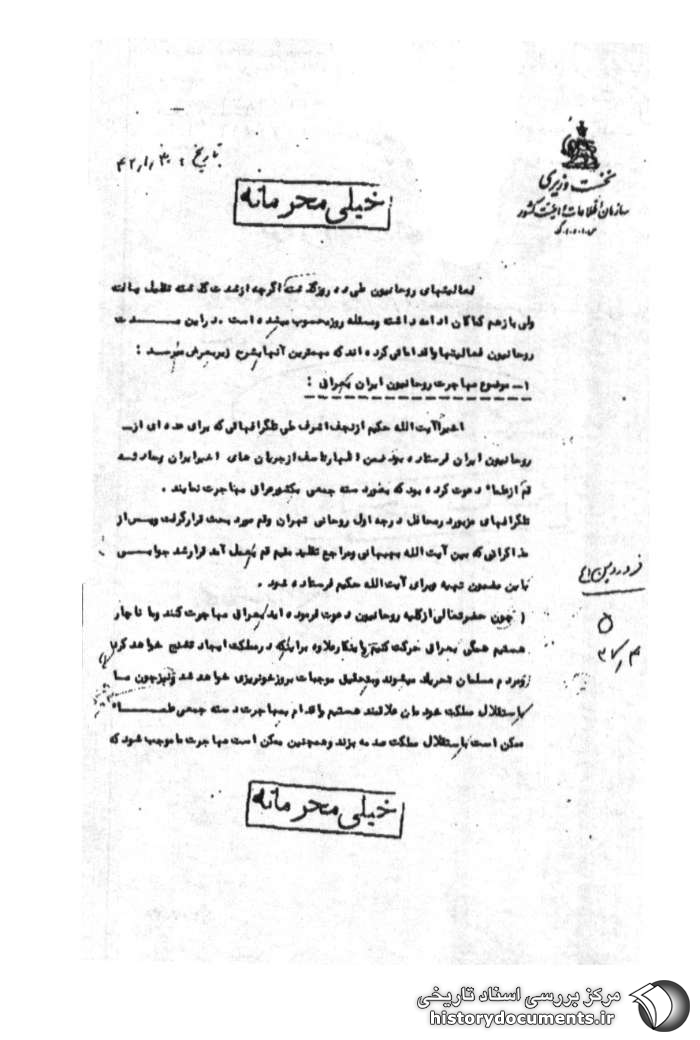 نخست وزیری
سازمان اطلاعات و امنیت کشور
تاریخ ۴۲٫۱٫۳۰
خیلی محرمانه
فعالیتهای روحانیون طی ده روز گذشته اگرچه از شدت گذشته تقلیل یافته
ولی بازهم کماکان ادامه داشته و مسئله روز محسوب میشده است . در این مدت
روحانیون فعالیتها و اقداماتی کرده اند که مهمترین آنها بشرح زیر بعرض میرسد :
۱- موضوع مهاجرت روحانیون ایران بعراق :
اخیرا آیت الله حکیم از نجف اشرف طی تلگرافهائی که برای عده ای از
روحانیون ایران فرستاده بود ضمن اظهار تاسف از جریان های اخیر ایران و حادثه
قم از علماء دعوت کرده بود که بطور دسته جمعی بکشور عراق مهاجرت نمایند .
تلگرافهای مزبور در محافل درجه اول روحانی تهران و قم مورد بحث قرار گرفت و پس از
مذاکراتی که بین آیت الله بهبهانی و مراجع تقلید مقیم قم بعمل آمد قرار شد جوابی
باین مضمون تهیه و برای آیت الله حکیم فرستاده شود .
( چون حضرتعالی از کلیه روحانیون دعوت فرموده اید بعراق مهاجرت کنند و ما ناچار
هستیم همگی بعراق حرکت کنیم و اینکار علاوه بر اینکه در مملکت ایجاد تشنج خواهد کرد
و مردم مسلمان تحریک میشوند و بتحقیق موجبات بروز خونریزی خواهد شد و نیز چون ما
باستقلال مملکت خودمان علاقمند هستیم و اقدام بمهاجرت دسته جمعی علماء
ممکن است باستقلال مملکت صدمه بزند و همچنین ممکن است مهاجرت ما موجب شود که
فروردین
۵
خیلی محرمانه
مرکز بررسی اسناد تاریخی
historydocuments.ir